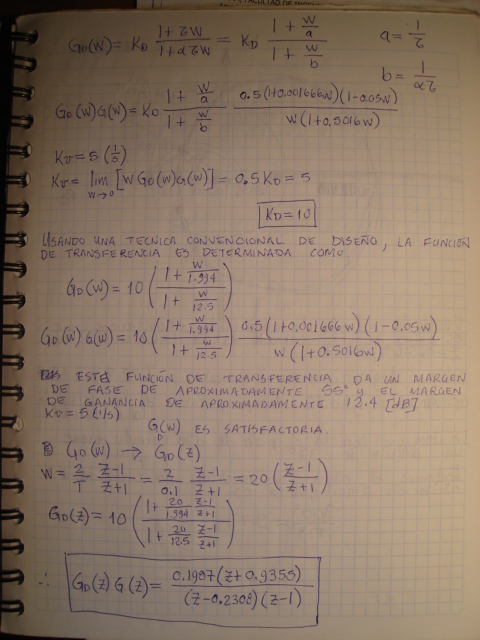 FACULTAD DE
G_D(W) = K_D (1+τW)/(1+ατW) = K_D (1 + W/a)/(1 + W/b)   a = 1/τ
b = 1/(ατ)
G_D(W)G(W) = K_D (1 + W/a)/(1 + W/b) · 0.5(1+0.001666W)(1-0.05W)/(W(1+0.5016W))
Kv = 5 (1/s)
Kv = lim W→0 [W G_D(W)G(W)] = 0.5 K_D = 5
K_D = 10
USANDO UNA TECNICA CONVENCIONAL DE DISEÑO, LA FUNCIÓN
DE TRANSFERENCIA ES DETERMINADA COMO
G_D(W) = 10 ((1 + W/1.994)/(1 + W/12.5))
G_D(W) G(W) = 10 ((1 + W/1.994)/(1 + W/12.5)) 0.5(1+0.001666W)(1-0.05W)/(W(1+0.5016W))
ESTA FUNCIÓN DE TRANSFERENCIA DA UN MARGEN
DE FASE DE APROXIMADAMENTE 55° Y EL MARGEN
DE GANANCIA DE APROXIMADAMENTE 12.4 [dB]
KV = 5 (1/s)
G_D(W) ES SATISFACTORIA.
G_D(W) → G_D(Z)
W = 2/T (Z-1)/(Z+1) = 2/0.1 (Z-1)/(Z+1) = 20 ((Z-1)/(Z+1))
G_D(Z) = 10 ((1 + 20/1.994 (Z-1)/(Z+1))/(1 + 20/12.5 (Z-1)/(Z+1)))
∴ G_D(Z) G(Z) = 0.1987(Z+0.9355)/((Z-0.2308)(Z-1))